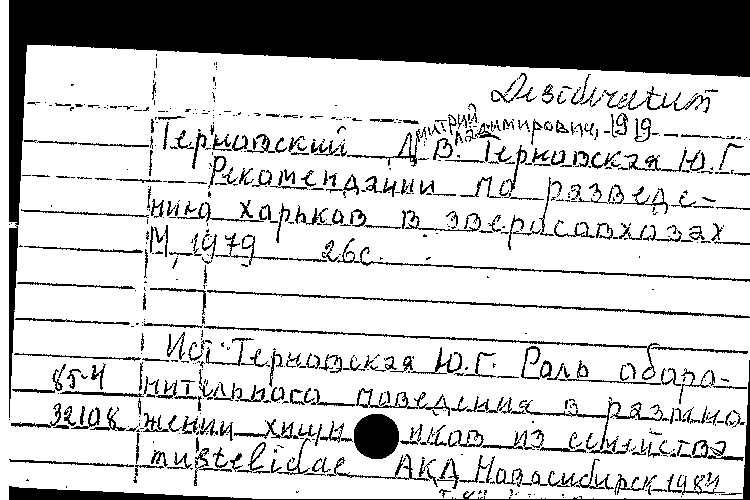 Desideratum
Дмитрий Владимирович, 1919-
Терновский Д.В. Терновская Ю.Г.
Рекомендации по разведе-
нию харьков в зверосовхозах
М, 1979 26с.
Ист: Терновская Ю.Г. Роль оборо-
85-4 нительного поведения в размно
32108 жении хищников из семейства
mustelidae АКД Новосибирск 1984